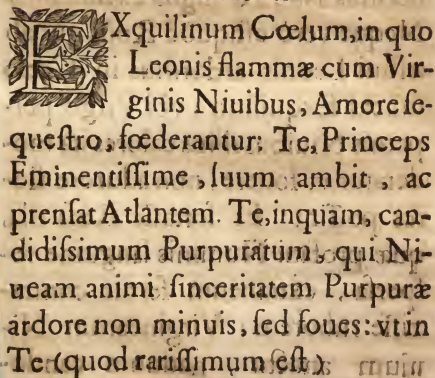 EXquilinum Cœlum, in quo
Leonis flammæ cum Vir-
ginis Niuibus, Amore ſe-
queſtro, fœderantur: Te, Princeps
Eminentiſſime, ſuum ambit, ac
prenſat Atlantem. Te, inquam, can-
didiſsimum Purpuratum, qui Ni-
ueam animi ſinceritatem Purpuræ
ardore non minuis, ſed foues: vt in
Te (quod rariſſimum eſt)